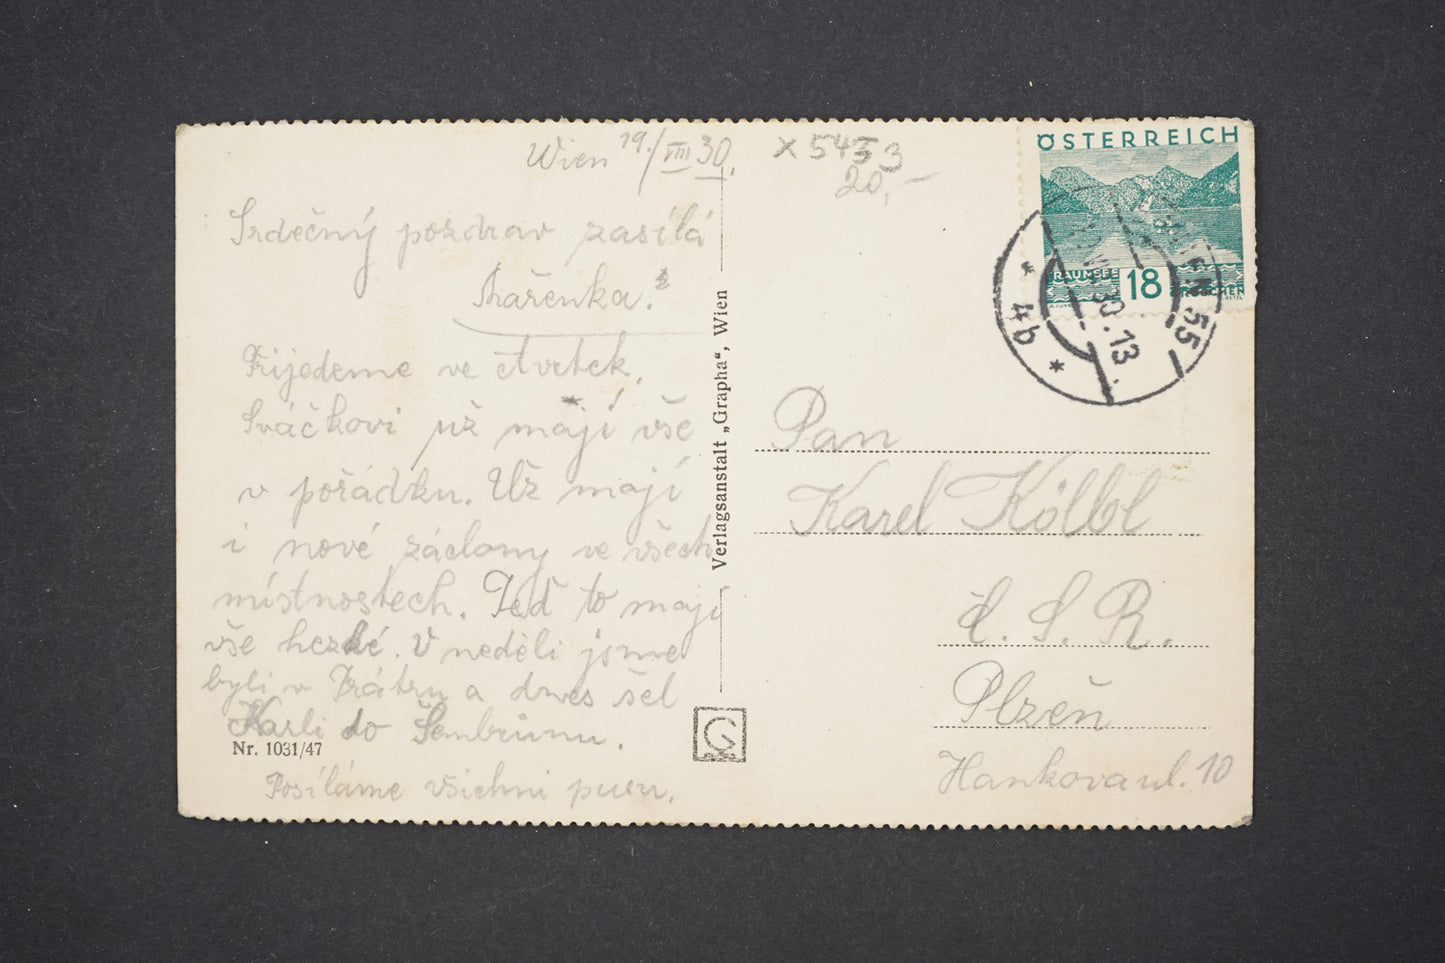 Wien 19./VIII 30.
Srdečný pozdrav zasílá
Mařenka.
Přijedeme ve čtvrtek.
Sváčkovi již mají vše
v pořádku. Už mají
i nové záclony ve všech
místnostech. Teď to mají
vše hezké. V neděli jsme
byli v Prátru a dnes šel
Karli do Šenbrůnu.
Nr. 1031/47
Posíláme všichni pusu.
Verlagsanstalt „Grapha“, Wien
G
x 5453
20,–
ÖSTERREICH
TRAUNSEE
18
WIEN 55
30.13
* 4b *
Pan
Karel Kölbl
Č. S. R.
Plzeň
Hankova ul. 10